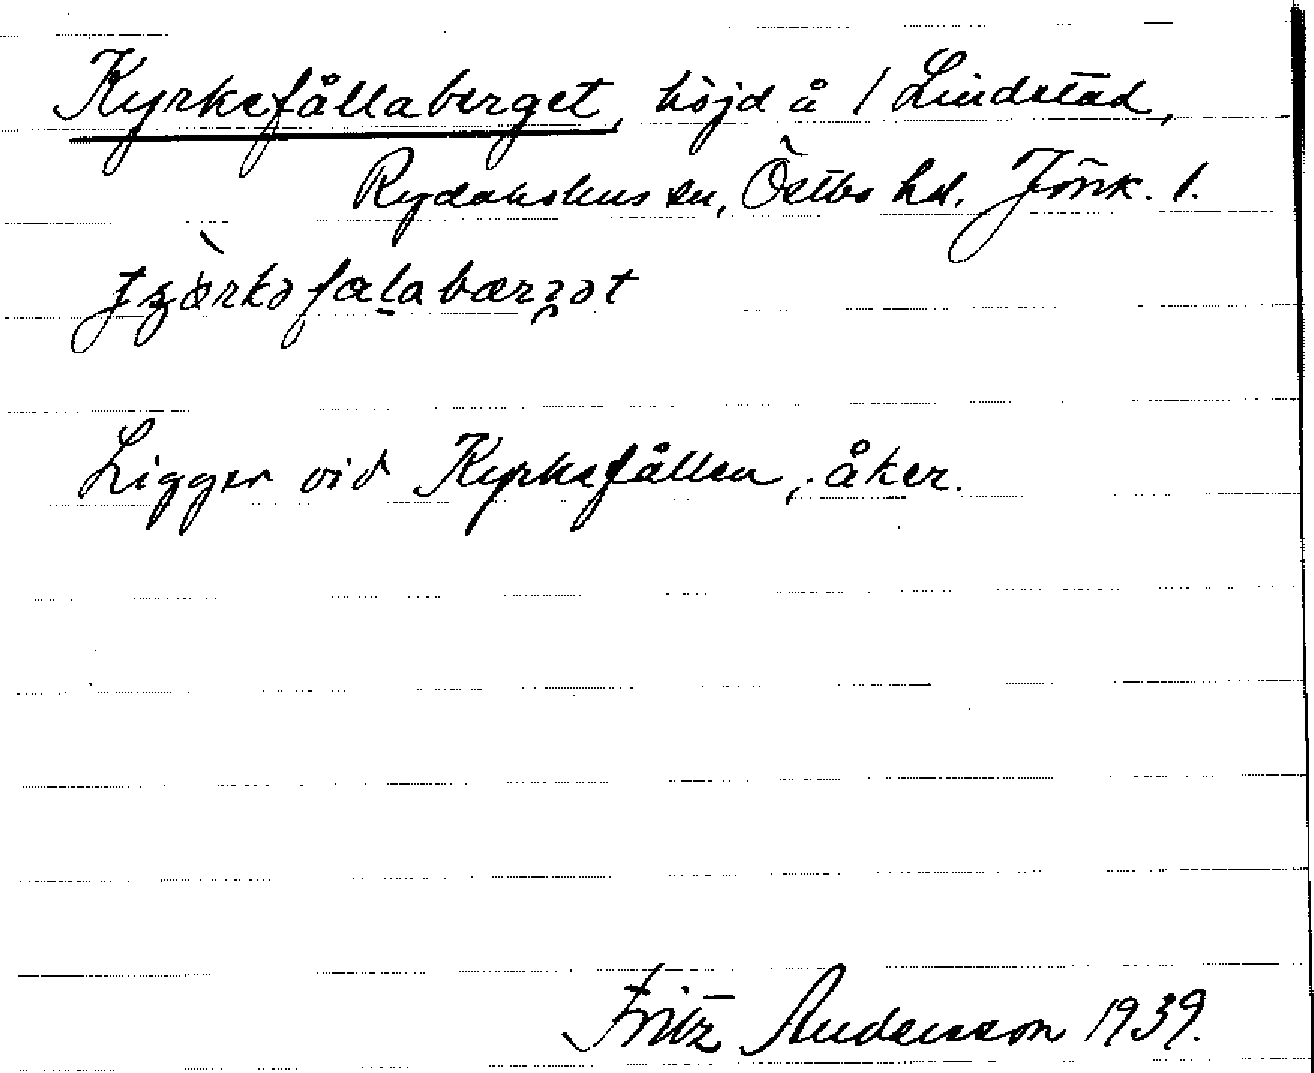 Kyrkefållaberget, höjd å 1 Lindstad,
Rydaholms sn, Östbo hd. Jönk. l.
Ligger vid Kyrkefållen, åker.
Fritz Andersson 1939.